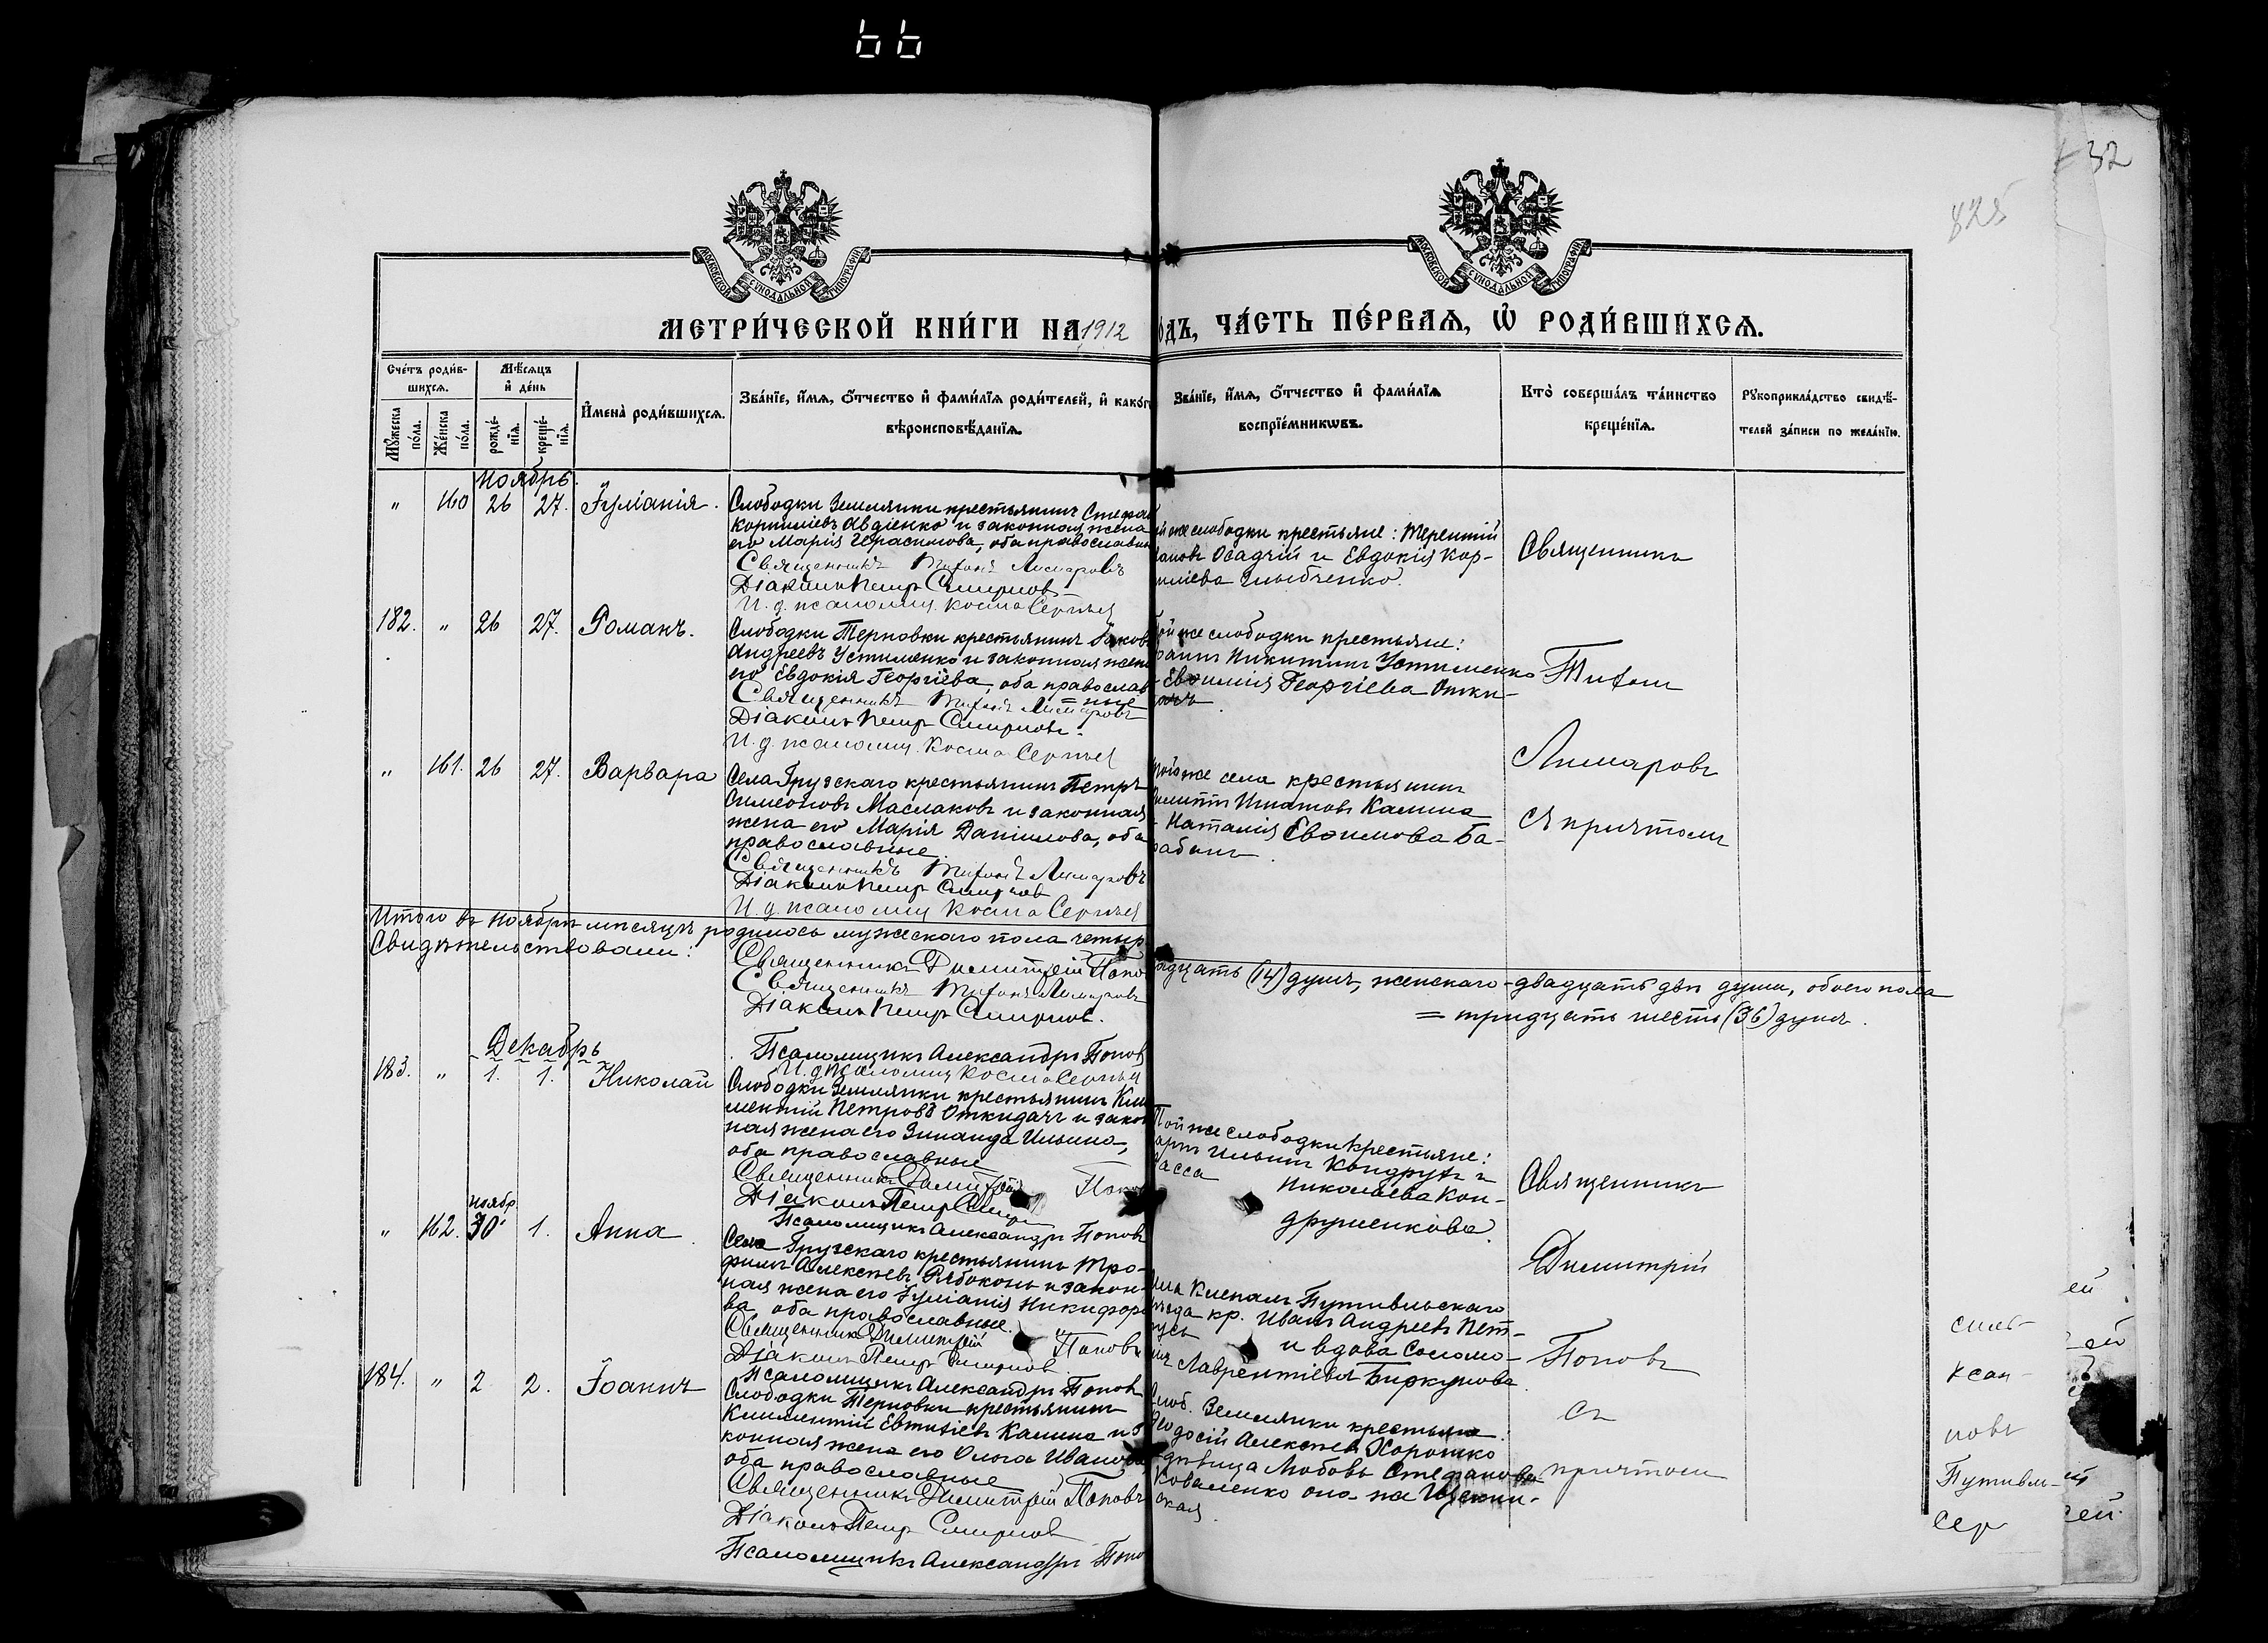 66
32
825
МОСКОВСКОЙ СѴНОДАЛЬНОЙ ТИПОГРАФІИ
МОСКОВСКОЙ СѴНОДАЛЬНОЙ ТИПОГРАФІИ
МЕТРИ́ЧЕСКОЙ КНИ́ГИ НА 1912
О́ДЪ, ЧА́СТЬ ПЕ́РВАѦ, Ѡ҆ РОДИ́ВШИХСѦ.
Сче́тъ роди́в-
шихсѧ.
Мѣ́сѧцъ
и҆ де́нь
Мꙋ́жеска
по́ла.
Же́нска
по́ла.
рожде́-
нїѧ.
креще́-
нїѧ.
И҆мена̀ роди́вшихсѧ.
Зва́нїе, и҆́мѧ, ѻ҆́тчество и҆ фами́лїѧ роди́телей, и҆ како́г
вѣроисповѣ́данїѧ.
Зва́нїе, и҆́мѧ, ѻ҆́тчество и҆ фами́лїѧ
воспрїе́мникѡвъ.
Кто̀ соверша́лъ та́инство
креще́нїѧ.
Рꙋкоприкла́дство свидѣ́-
телей за́писи по жела́нїю.
Ноябрь.
" 160 26 27. Іуліанія.
Слободки Землянки крестьянинъ Стефан
Корниліевъ Авдіенко и законная жена
его Марія Герасимова, оба православн
Священникъ Тихонъ Лимаровъ
Діаконъ Петръ Смирновъ
И. д. псаломщ. Косма Сергѣев
ой же слободки крестьяне: Терентій
Осадчій и Евдокія Кор-
ниліева
Священникъ
182. " 26 27. Романъ.
Слободки Терновки крестьянинъ Іаков
Андреевъ Устименко и законная жена
его Евдокія Георгіева, оба православ
=ные
Священникъ Тихонъ Лимаровъ
Діаконъ Петръ Смирновъ
И. д. псаломщ. Косма Сергѣев
ой же слободки крестьяне:
Никитинъ Устименко
Евѳимія Георгіева Отки-
дачъ
Тихонъ
Лимаровъ
" 161. 26 27. Варвара
Села Грузскаго крестьянинъ Петръ
Симеоновъ Маслаковъ и законная
жена его Марія Даніилова, оба
православные.
Священникъ Тихонъ Лимаровъ
Діаконъ Петръ Смирновъ
И. д. псаломщ Косма Сергѣев
того же села крестьянинъ
Игнатовъ Калина
Наталія Евѳимова Ба-
рабашъ
съ причтомъ
Итого въ Ноябрѣ мѣсяцѣ родилось мужескаго пола четыр
надцать (14) душъ, женскаго - двадцать двѣ души, обоего пола
= тридцать шесть (36) душъ.
Свидѣтельствовали:
Священникъ Димитрій Попо
Священникъ Тихонъ Лимаровъ
Діаконъ Петръ Смирновъ.
Псаломщикъ Александръ Попов
И. д. псаломщ Косма Сергѣев
Декабрь
183. " 1. 1. Николай
Слободки Землянки крестьянинъ Кли
ментій Петровъ Откидачъ и закон
ная жена его Зинаида Ильина,
оба православные
Священникъ Димитрій Попов
Діаконъ Петръ Смир
Псаломщикъ Александръ Поповъ
Той же слободки крестьяне:
Ильинъ Кондрух и
Васса Николаева Кон-
друшенкова.
Священникъ
Ноябр.
" 162. 30 1. Анна
Села Грузскаго крестьянинъ Тро-
фимъ Алексѣевъ Рябоконь и закон-
ная жена его Іуліанія Никифоро
ва, оба православные.
Священникъ Димитрій Поповъ
Діаконъ Петръ Смирновъ
Псаломщикъ Александръ Поповъ
ла Клепалъ Путивльскаго
уѣзда кр. Иванъ Андреевъ Пет-
русь и вдова Соломо-
нія Лаврентіева Биркунова
Димитрій
Поповъ
184. " 2 2. Іоаннъ
Слободки Терновки крестьянинъ
Климентій Евтихіевъ Калина и за
конная жена его Ольга Иванова
оба православные
Священникъ Димитрій Поповъ
Діаконъ Петръ Смирновъ
Псаломщикъ Александръ Попо
Слоб. Землянки крестьяне
Ѳеодосій Алексѣевъ Хорошко
дѣвица Любовь Стефанова
Коваленко
съ
причтомъ
силь-
ксан-
новъ
Путивль-
Сер
ей
ей
ей